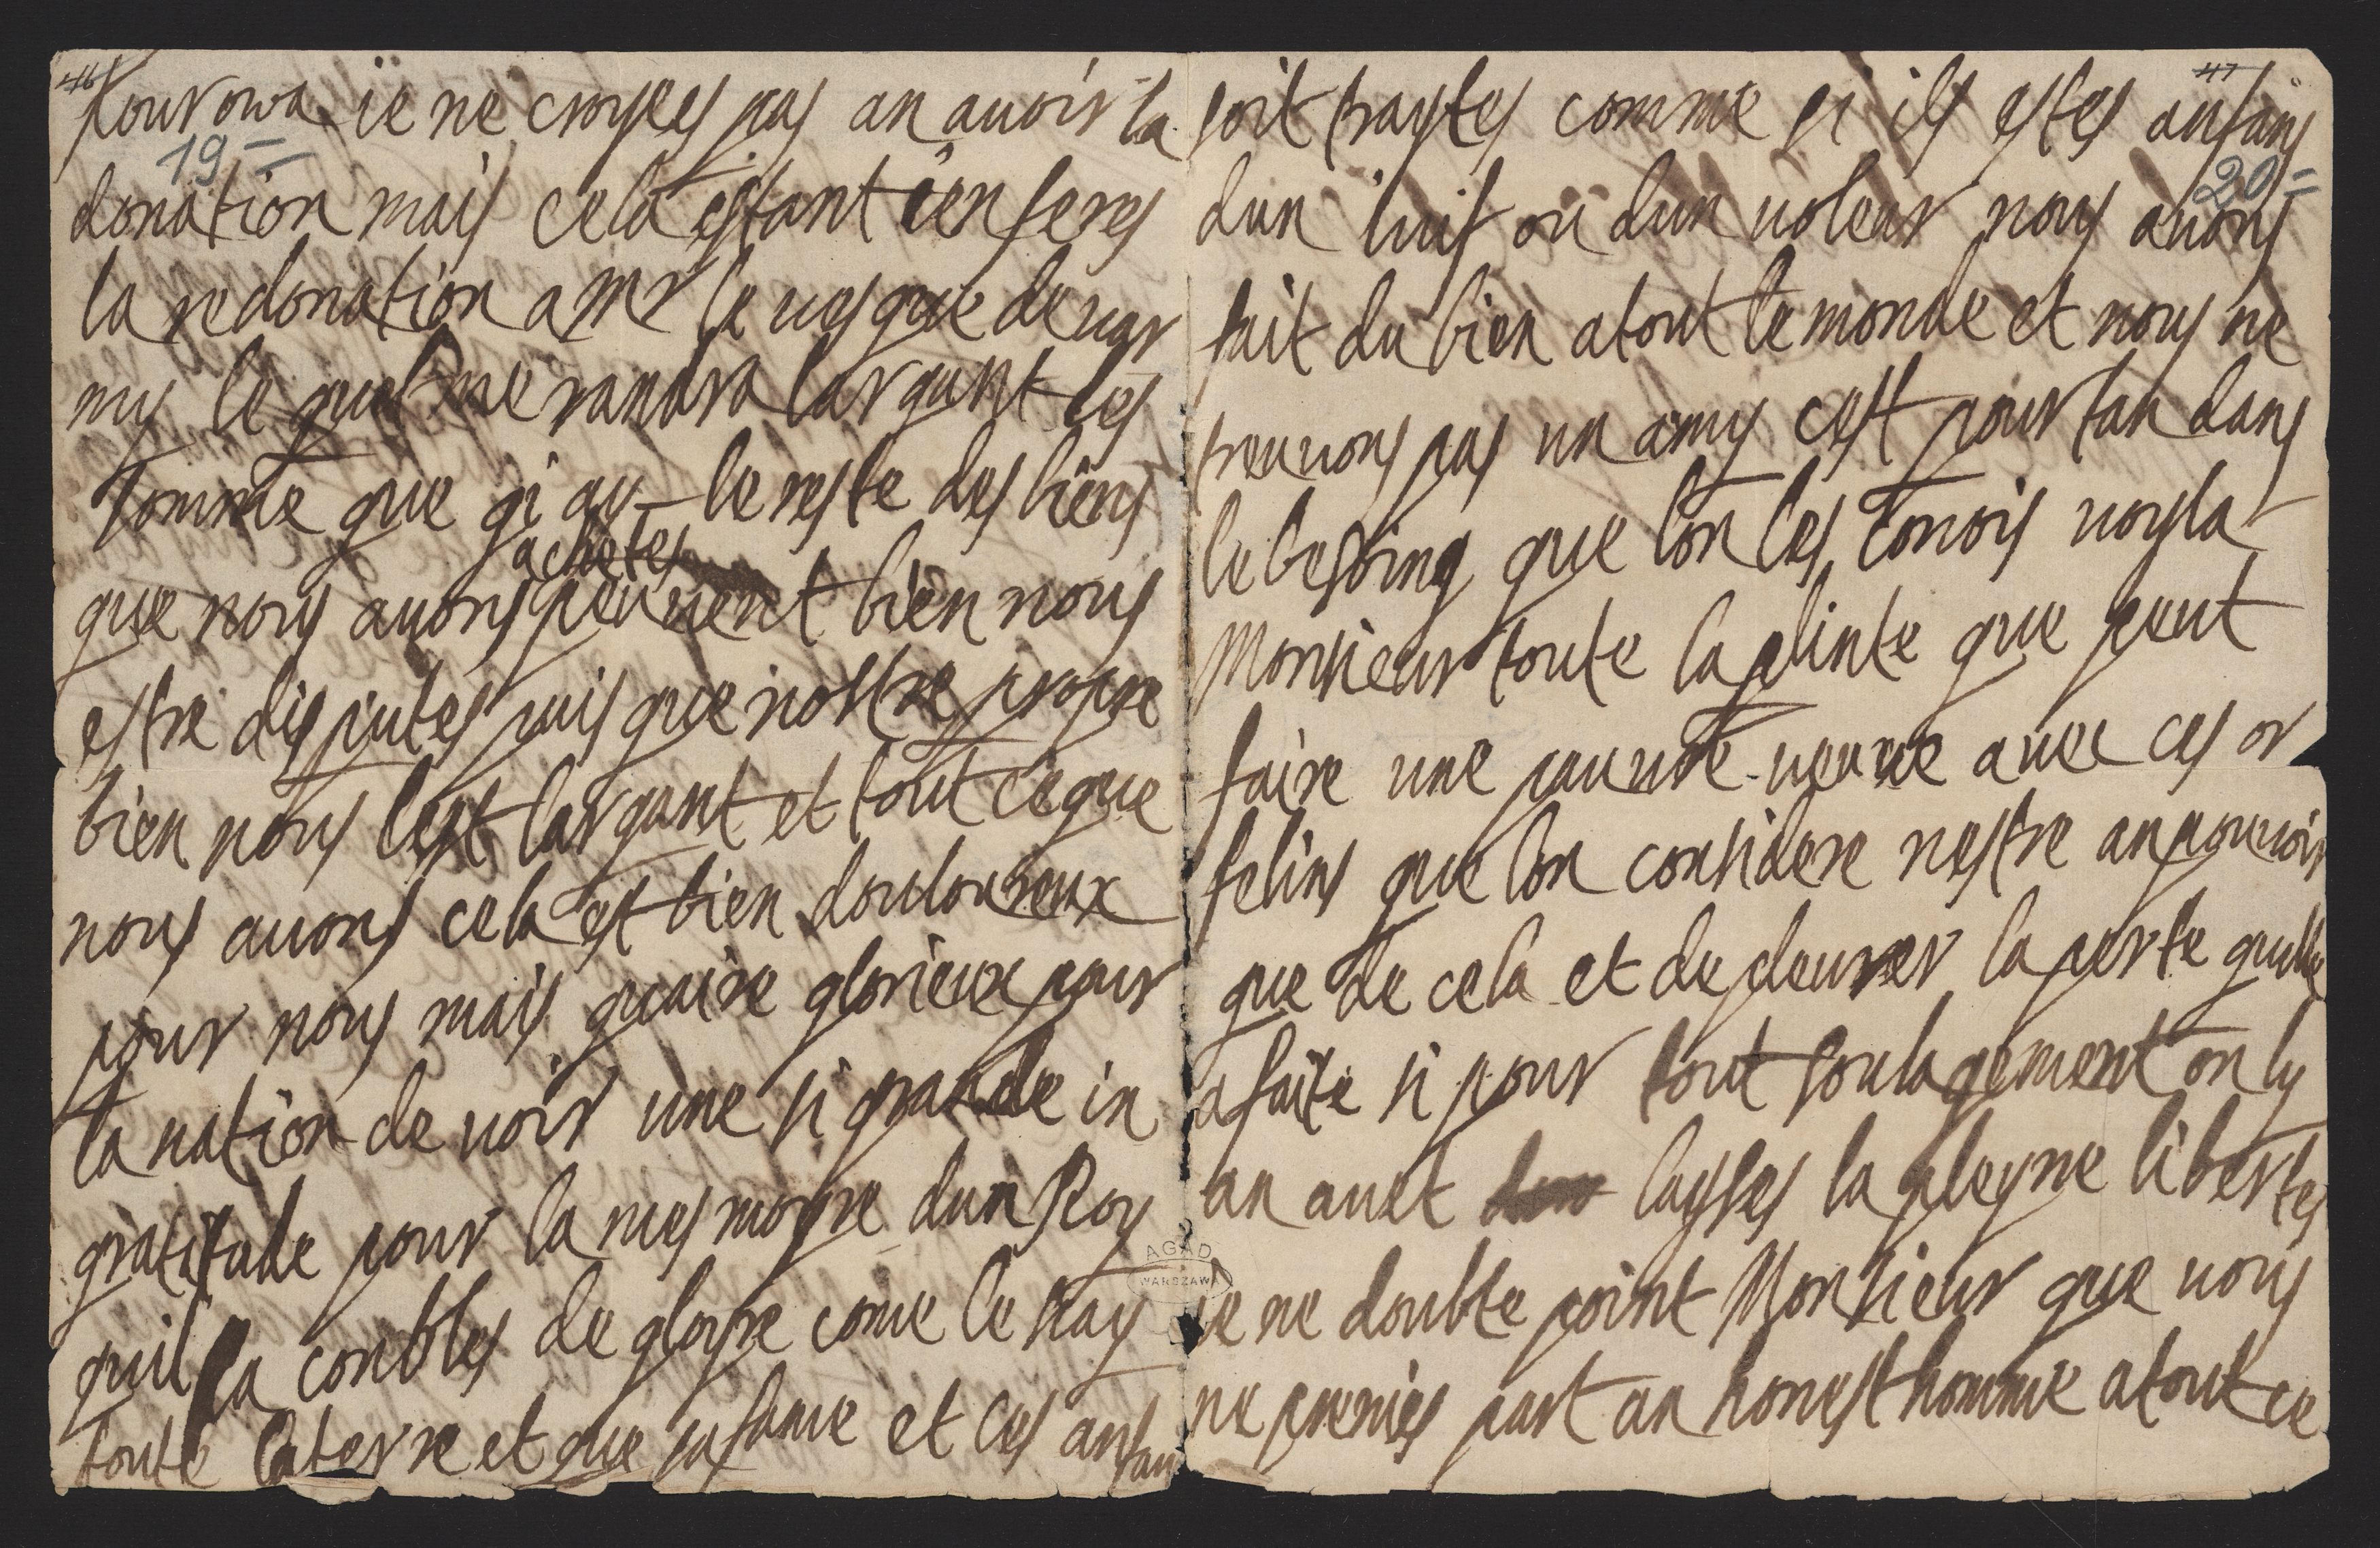 46
kourowa ie ne croyees pas an auoir la
19=
donation mais cela estant i'en feres
la redonation a Mr le uesque de uar
my le quel me randra largant les
somme que gi ay le reste des biens
achetes
que nous auons peuuent bien nous
estre disputes puis que nostre propre
bien nous lest largant et tout ce que
nous auons cela est bien douloureux
pour nous mais guaire glorieux pour
la nation de uoir une si grande in
gratitude pour la mesmoyre dun Roy
quil la conbles de gloyre come le say
toute laterre et que sa fame et ces anfans
47
soit traytes comme si ils estes anfans
20=
dun iuif ou dun uoleur nous auons
fait du bien atout le monde et nous ne
treuuons pas un amy cest pourtan dans
le besoing que lon les conois uoyla
Monsieur toute la plinte que peut
faire une pauure ueuue auec ces or
felins que lon considere nestre an pouuoir
que de cela et de pleurer la perte quelle
a faite si pour tout soulagement on ly
an auet laysses la pleyne libertes
ie ne doubte point Monsieur que uous
ne prenies part an honest homme atout ce
AGAD
WARSZAWA